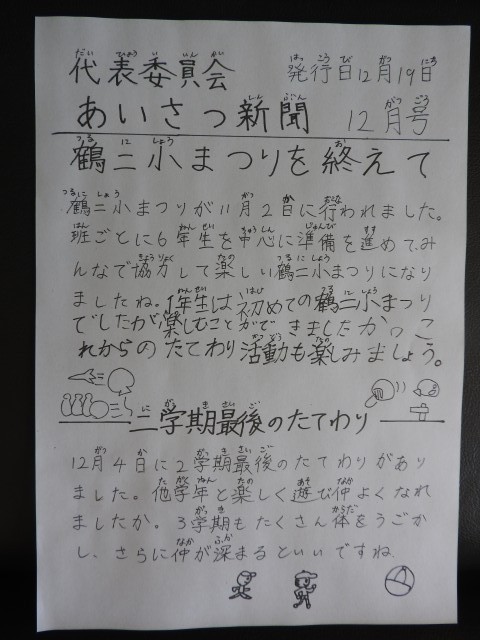 代表委員会 発行日12月19日
あいさつ新聞 12月号
鶴二小まつりを終えて
鶴二小まつりが11月2日に行われました。
班ごとに6年生を中心に準備を進めてみ
んなで協力して楽しい鶴二小まつりになり
ましたね。1年生は初めての鶴二小まつり
でしたが楽しむことができましたかっこ
れからのたてわり活動も楽しみましょう。
二学期最後のたてわり
12月4日に2学期最後のたてわりがあり
ました。他学年と楽しく遊び仲よくなれ
ましたか。3学期もたくさん体をうごか
し、さらに仲が深まるといいですね.